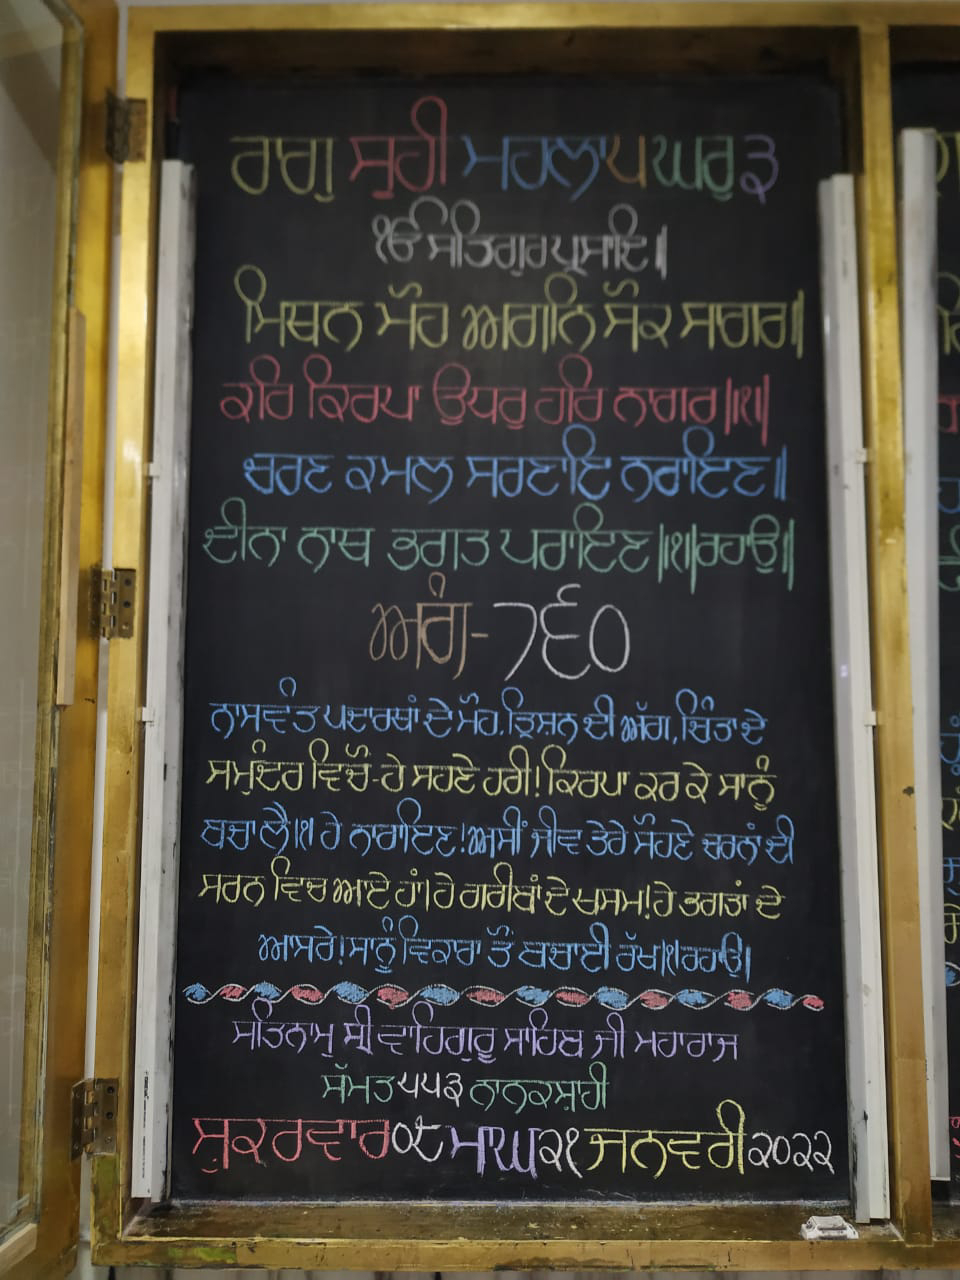 ਰਾਗੁ ਸੂਹੀ ਮਹਲਾ ੫ ਘਰੁ ੩
ੴ ਸਤਿਗੁਰ ਪ੍ਰਸਾਦਿ॥
ਮਿਥਨ ਮੋਹ ਅਗਨਿ ਸੋਕ ਸਾਗਰ॥
ਕਰਿ ਕਿਰਪਾ ਉਧਰੁ ਹਰਿ ਨਾਗਰ॥੧॥
ਚਰਣ ਕਮਲ ਸਰਣਾਇ ਨਰਾਇਣ॥
ਦੀਨਾ ਨਾਥ ਭਗਤ ਪਰਾਇਣ॥੧॥ਰਹਾਉ॥
ਅੰਗ-੭੬੦
ਨਾਸਵੰਤ ਪਦਾਰਥਾਂ ਦੇ ਮੋਹ, ਤ੍ਰਿਸ਼ਨ ਦੀ ਅੱਗ, ਚਿੰਤਾ ਦੇ
ਸਮੁੰਦਰ ਵਿਚੋਂ-ਹੇ ਸਹਣੇ ਹਰੀ! ਕਿਰਪਾ ਕਰ ਕੇ ਸਾਨੂੰ
ਬਚਾ ਲੈ।੧। ਹੇ ਨਾਰਾਇਣ! ਅਸੀਂ ਜੀਵ ਤੇਰੇ ਸੋਹਣੇ ਚਰਨਾਂ ਦੀ
ਸਰਨ ਵਿਚ ਆਏ ਹਾਂ। ਹੇ ਗਰੀਬਾਂ ਦੇ ਖਸਮ! ਹੇ ਭਗਤਾਂ ਦੇ
ਆਸਰੇ! ਸਾਨੂੰ ਵਿਕਾਰਾ ਤੋਂ ਬਚਾਈ ਰੱਖ।੧।ਰਹਾਉ।
ਸਤਿਨਾਮੁ ਸ੍ਰੀ ਵਾਹਿਗੁਰੂ ਸਾਹਿਬ ਜੀ ਮਹਾਰਾਜ
ਸੰਮਤ ੫੫੩ ਨਾਨਕਸ਼ਾਹੀ
ਸ਼ੁਕਰਵਾਰ ੦੮ ਮਾਘ ੨੧ ਜਨਵਰੀ ੨੦੨੨